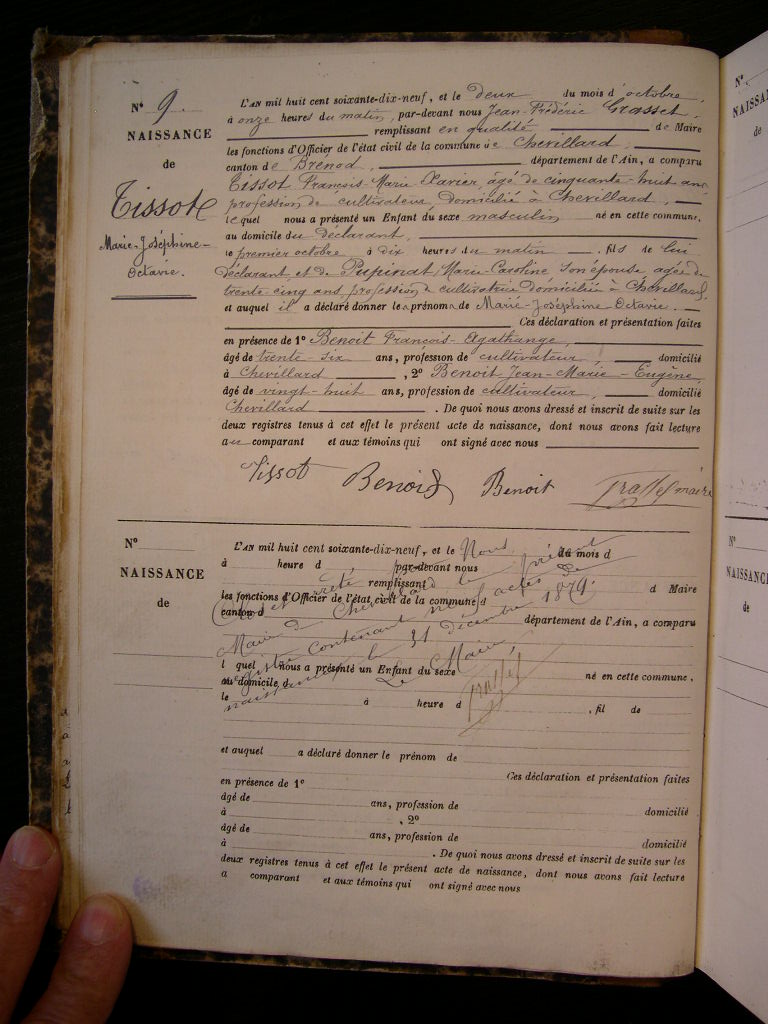 N° 9.
NAISSANCE
de
Tissot
Marie-Joséphine-
Octavie.
L'AN mil huit cent soixante-dix-neuf, et le deux du mois d'octobre,
à onze heures du matin, par-devant nous Jean-Frédéric Grasset,
remplissant en qualité de Maire
les fonctions d'Officier de l'état civil de la commune de Chevillard,
canton de Brénod, département de l'Ain, a comparu
Tissot François-Marie Xavier, âgé de cinquante-huit ans,
profession de cultivateur, domicilié à Chevillard,
lequel nous a présenté un Enfant du sexe masculin né en cette commune,
au domicile du déclarant,
le premier octobre à dix heures du matin, fils de lui
déclarant, et de Pupinat, Marie-Caroline, son épouse, agée de
trente cinq ans, profession de cultivateur domiciliée à Chevillard,
et auquel il a déclaré donner les prénoms de Marie-Joséphine Octavie.
Ces déclaration et présentation faites
en présence de 1° Benoit François-Agathange,
âgé de trente-six ans, profession de cultivateur, domicilié
à Chevillard, 2° Benoit Jean-Marie-Eugène,
âgé de vingt-huit ans, profession de cultivateur, domicilié
Chevillard. De quoi nous avons dressé et inscrit de suite sur les
deux registres tenus à cet effet le présent acte de naissance, dont nous avons fait lecture
au comparant et aux témoins qui ont signé avec nous
Tissot Benoit Benoit Grasset maire
N°
NAISSANCE
de
L'AN mil huit cent soixante-dix-neuf, et le du mois d
à heure d par-devant nous
remplissant
les fonctions d'Officier de l'état civil de la commune d d Maire
canton d département de l'Ain, a comparu
l quel nous a présenté un Enfant du sexe né en cette commune,
au domicile d
le à heure d , fil de
et auquel a déclaré donner le prénom de
Ces déclaration et présentation faites
en présence de 1°
âgé de ans, profession de domicilié
à , 2°
âgé de ans, profession de domicilié
à . De quoi nous avons dressé et inscrit de suite sur les
deux registres tenus à cet effet le présent acte de naissance, dont nous avons fait lecture
a comparant et aux témoins qui ont signé avec nous
Clos et arrêté le présent
registre contenant neuf actes de
naissances, le 31 décembre 1879.
Le Maire
Grasset
N°
NAISSANCE
N°
NAISSANCE
de